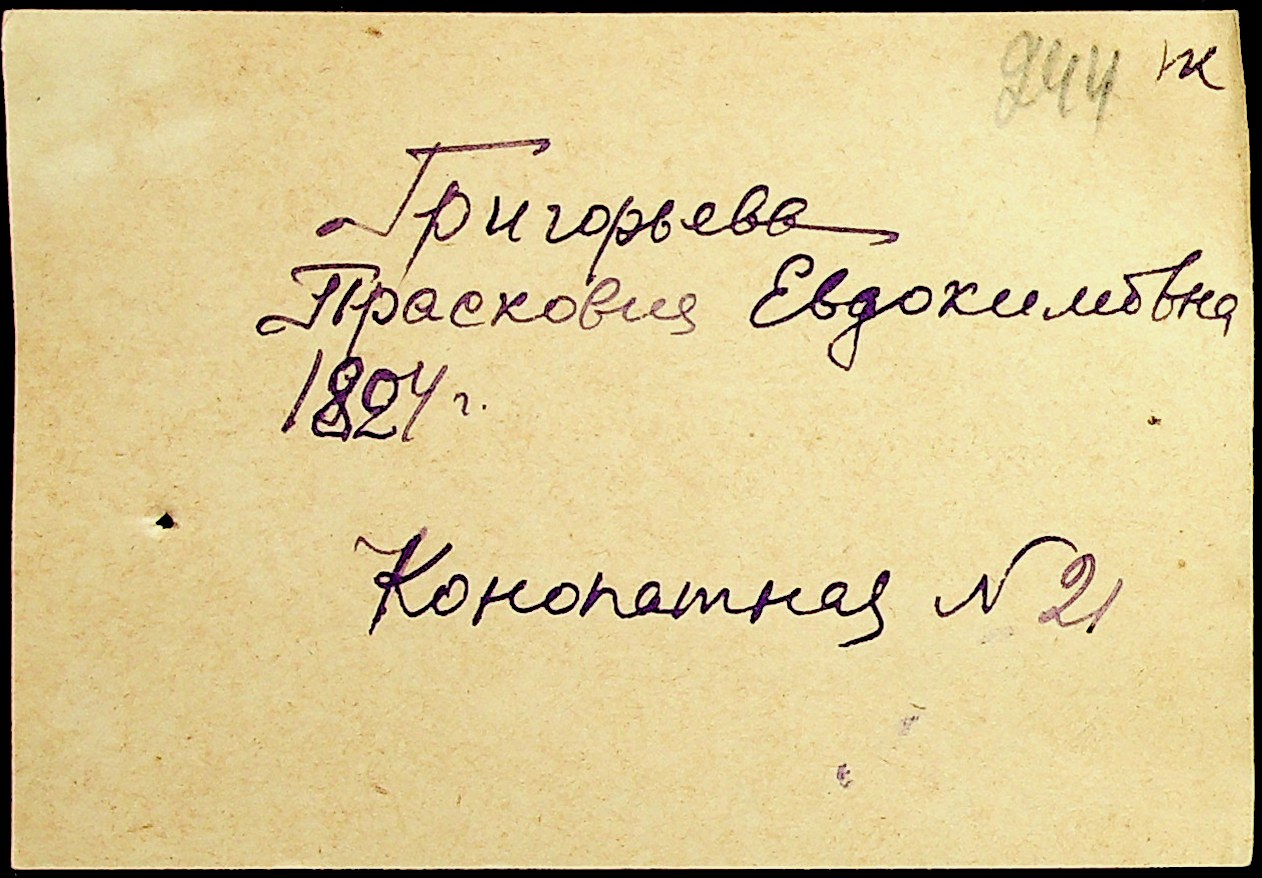 244 ж
Григорьева
Прасковия Евдокимовна
1824 г.
Конопатная N 21